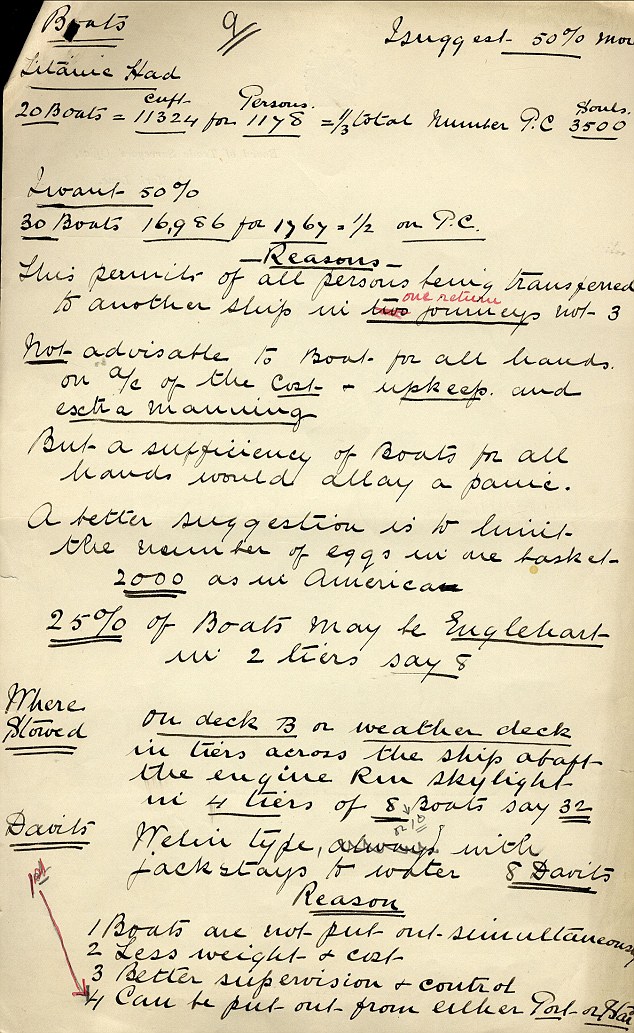 Boats 9 I suggest 50% mor
Titanic Had
20 Boats = 11324 cuft for 1178 Persons. = 1/3 total Number P.C 3500 Souls.
I want 50%
30 Boats 16,986 for 1767 = 1/2 on P.C.
— Reasons —
This permits of all persons being transferred
to another ship in two one return journeys not 3
Not advisable to Boat for all hands.
on a/c of the Cost + upkeep. and
extra manning
But a sufficiency of Boats for all
hands would allay a panic.
A better suggestion is to limit
the number of eggs in one basket
2000 as in American
25% of Boats may be Englehart
in 2 tiers say 8
Where
Stowed
on deck B or weather deck
in tiers across the ship abaft
the engine Rm Skylight
in 4 tiers of 8 Boats say 32
or 10
Davits
Welin type, always with
jackstays to water 8 Davits
Reason
1st
1 Boats are not put out simultaneously
2 Less weight + cost
3 Better supervision + control
4 Can be put out from either Port or Star